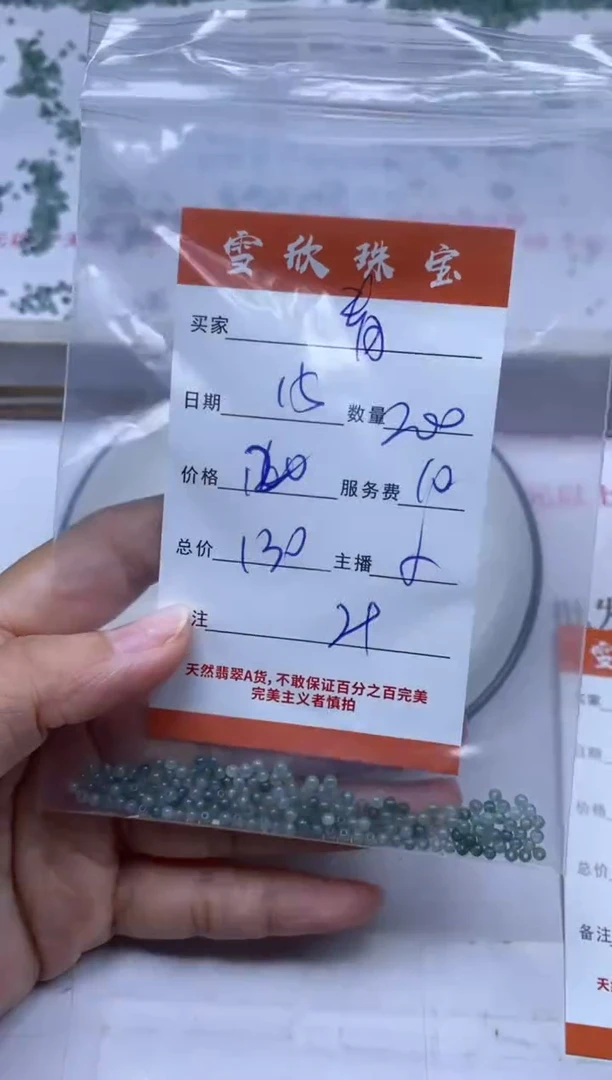 雪欣珠宝
买家
日期 15 数量 200
价格 120 服务费 10
总价 130 主播
注
天然翡翠A货,不敢保证百分之百完美
完美主义者慎拍
雪
日期
价格
总价
备注
天